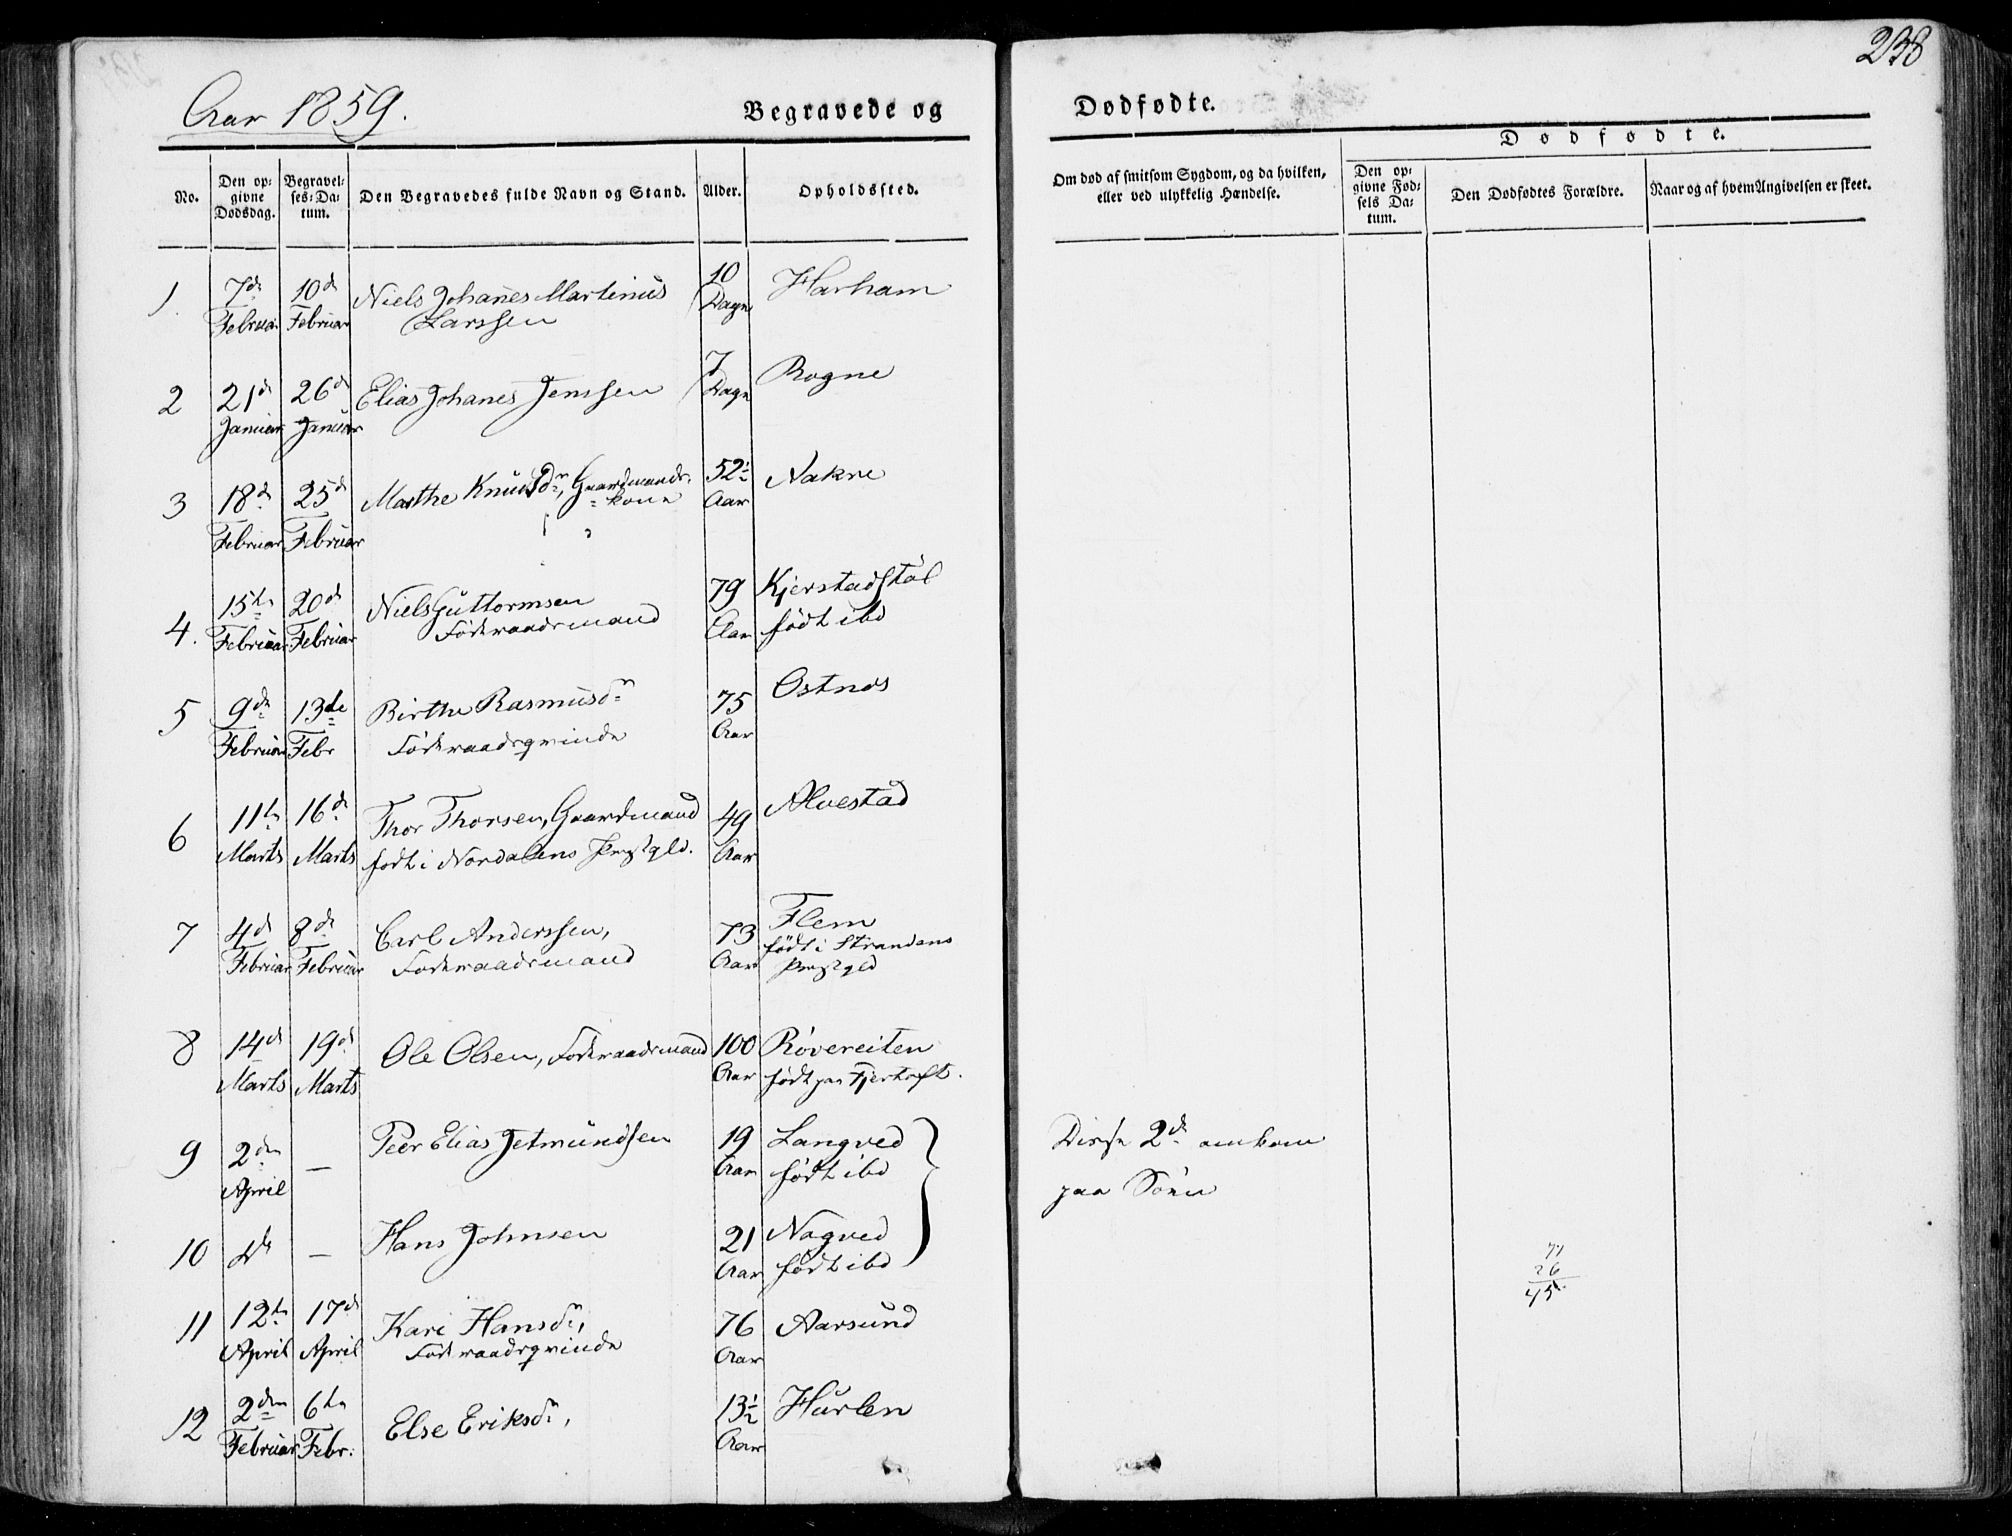 238
Aar 1859.
Begravede og
Dødfødte.
Dødfødte.
No.
Den op-
givne
Dødsdag.
Begravel-
ses-Da-
tum.
Den Begravedes fulde Navn og Stand.
Alder.
Opholdssted.
Om død af smitsom Sygdom, og da hvilken,
eller ved ulykkelig Hændelse.
Den op-
givne Fød-
sels Da-
tum.
Den Dødfødtes Forældre.
Naar og af hvem Angivelsen er skeet.
1. 7de 10de Niels Johanes Martinus 10 Harham
Februar Februar Larssen Dage
2 21de 26de Elias Johanes Jenssen 7 Rogne
Januar Januar Dage
3 18de 25de Marthe Knudsdr, Gaardmands- 52½ Nakne
Februar Februar kone Aar
4. 15te 20de Niels Guttormsen 79 Kjerstadstøl
Februar Februar Føderaadsmand Aar født ibd
5 9de 13de Birthe Rasmusdr 75 Ostnes
Februar Febr Føderaadsqvinde Aar
6 11te 16de Thor Thorsen, Gaardmand 49 Alvestad
Marts Marts født i Nordalens Præstgld. Aar
7 4de 8de Carl Anderssen, 73 Flem
Februar Februar Føderaadsmand Aar født i Strandens
Præstgld
8 14de 19de Ole Olsen, Føderaadsmand 100 Røvereiten
Marts Marts Aar født paa Fjertoft.
9 2den — Peer Elias Jetmundsen 19 Langved Disse 2de omkom
April Aar født ibd paa Søen
10 do — Hans Johnsen 21 Nogved
Aar født ibd
26
45
11 12te 17de Kari Hansdr, 76 Aarsund
April April Føderaadsqvinde Aar
12 2den 6te Else Eriksdr, 13½ Hurlen
Februar Febr: Aar